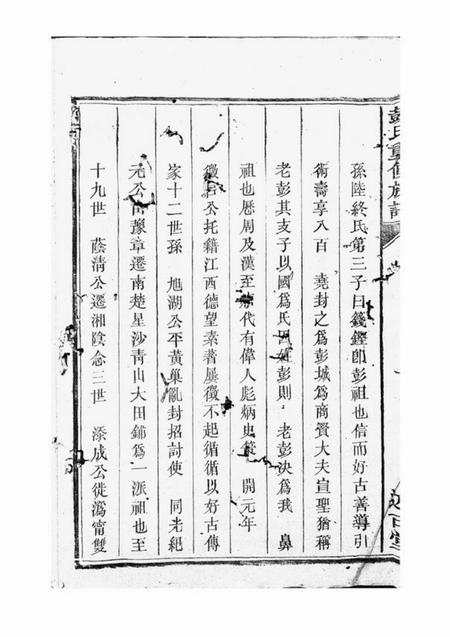 彭氏重修族譜
孫陸終氏第三子曰籛鏗卽彭祖也信而好古善導引
術壽享八百 堯封之爲彭城爲商賢大夫宣聖猶稱
老彭其支子以國爲氏因姓彭則 老彭決爲我 鼻
祖也歷周及漢至 代有偉人彪炳史 開元年
徵君公托籍江西德望素著屢徵不起循循以好古傳
家十二世孫 旭湖公平黃巢亂封招討使 同光紀
元公由豫章遷南楚星沙靑山大田鋪爲一派祖也至
十九世 蔭淸公遷湘陰念三世 添成公徙潙甯雙